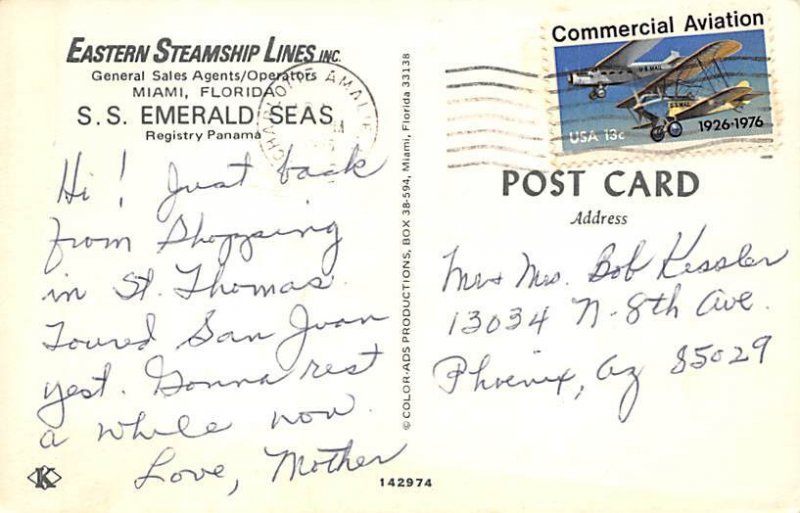 EASTERN STEAMSHIP LINES INC.
General Sales Agents/Operators
MIAMI, FLORIDA
S.S. EMERALD SEAS
Registry Panama
Hi! Just back
from shopping
in St. Thomas.
Toured San Juan
yest. Gonna rest
a while now.
Love, Mother
K
© COLOR-ADS PRODUCTIONS, BOX 38-594, Miami, Florida 33138
142974
CHARLOTTE AMALIE
Commercial Aviation
U.S. MAIL
U.S. MAIL
USA 13c
1926-1976
POST CARD
Address
Mr + Mrs. Bob Kessler
13034 N. 8th Ave.
Phoenix, Az 85029